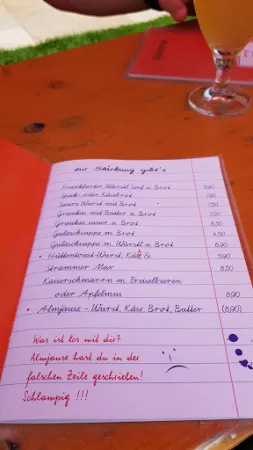 Zur Stärkung gibt's
Frankfurter Würstl Senf u. Brot
Speck- oder Käsebrot
Saure Wurst mit Brot
Grauka mit Butter u. Brot
Grauka sauer u. Brot
Gulaschsuppe m. Brot 6,50
Gulaschsuppe m. Würstl u. Brot 8,90
• Hüttentoast-Wurst, Käse, Ei 5,90
Strammer Max 8,50
Kaiserschmarrn m. Preiselbeeren
oder Apfelmus 8,90
• Almjause - Wurst, Käse, Brot, Butter (8,90)
Was ist los mit dir?
Almjause hast du in der
falschen Zeile geschrieben!
Schlampig !!!